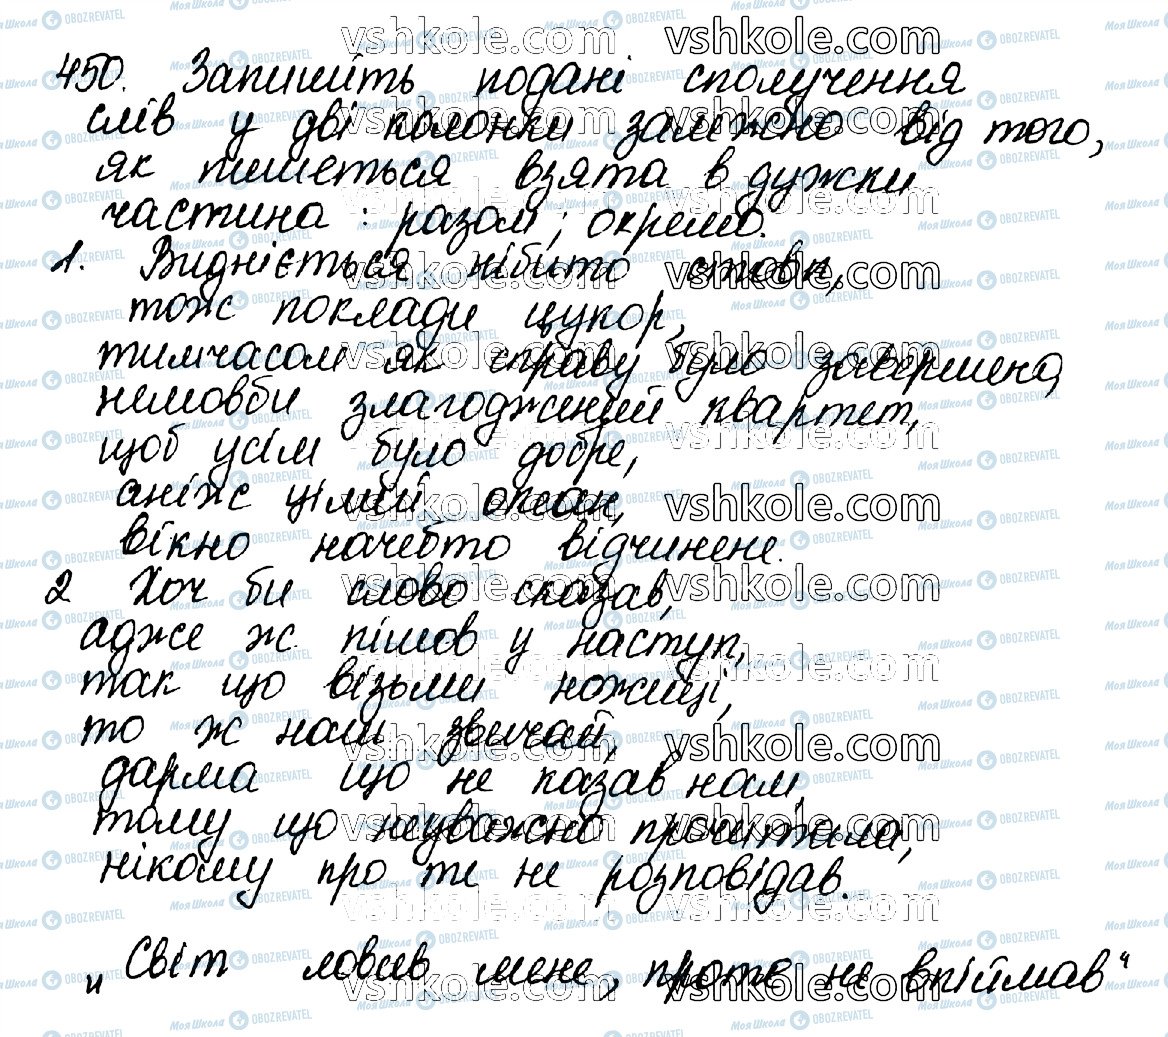 450. Запишіть подані сполучення
слів у дві колонки залежно від того,
як пишеться взята в дужки
частина: разом; окремо.
1. Видніється нібито ставок,
тож поклади цукор,
тимчасом як справу було завершено,
немовби злагоджений квартет,
щоб усім було добре,
аніж цілий океан,
вікно начебто відчинене.
2 Хоч би слово сказав,
адже ж пішов у наступ,
так що візьми ножиці,
то ж наш звичай,
дарма що не казав нам,
тому що неуважно прочитала,
нікому про те не розповідав.
„Світ ловив мене, проте не впіймав“